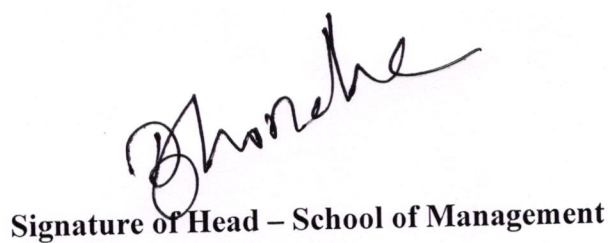 Signature of Head – School of Management